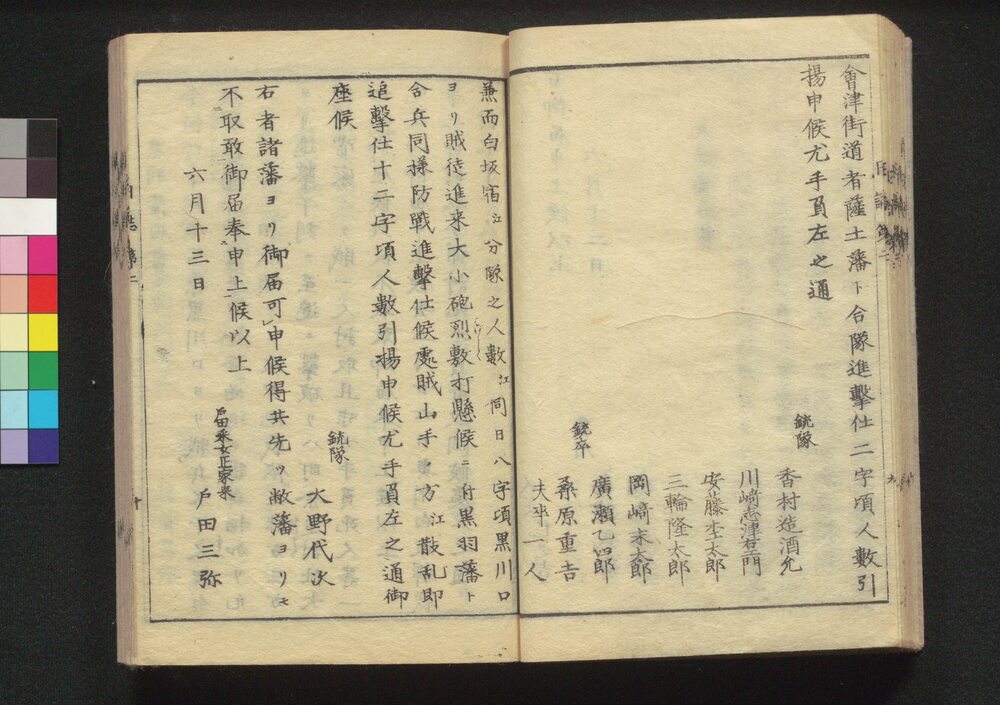 會津街道者薩土藩ト合隊進擊仕二字頃人數引
揚申候尤手負左之通
銃隊
香村造酒允
川﨑志津右衛門
安藤李太郎
三輪隆太郎
岡﨑末太郎
廣瀬乙四郎
銃卒
桑原重吉
夫卒一人
兼而白坂宿江分隊之人數江同日八字頃黒川口
ヨリ賊徒進来大小砲烈敷打懸候ニ付黒羽藩ト
合兵同様防戦進擊仕候處賊山手ノ方江散乱即
追擊仕十二字頃人數引揚申候尤手負左之通御
座候
銃隊
大野代次
右者諸藩ヨリ御届可申候得共先ツ敝藩ヨリモ
不取敢御届奉申上候以上
六月十三日
戸田三弥